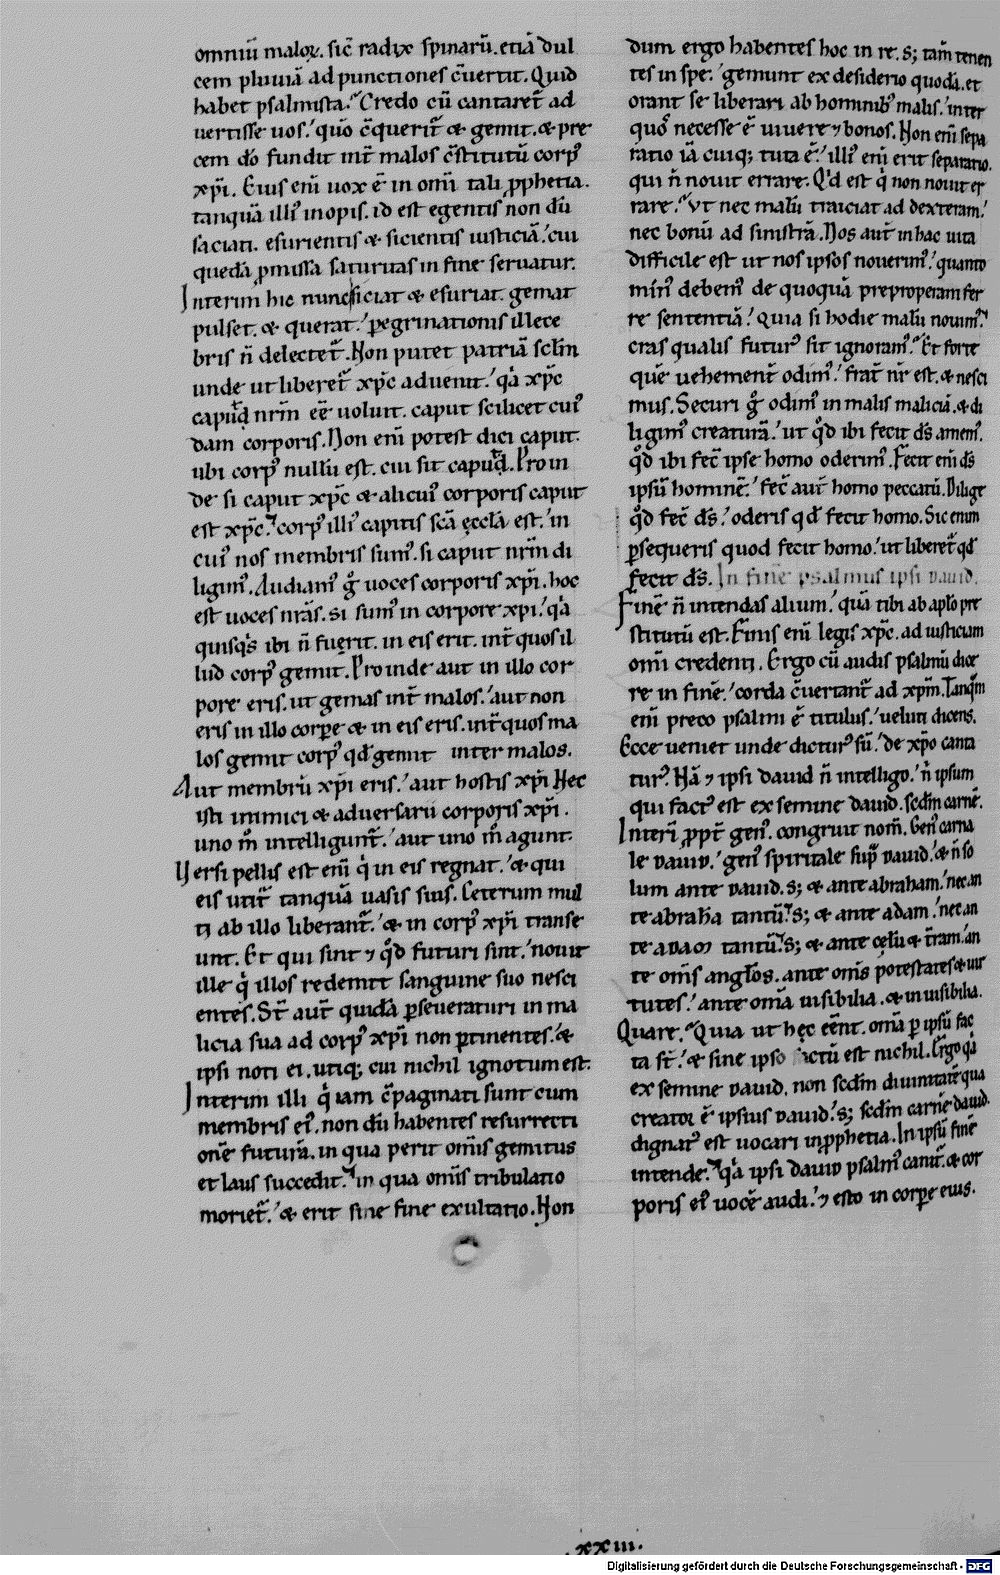 omniū maloꝝ. sic̄ radix spinarū. etiā dul
cem pluuiā ad punctiones c̄uertit. Quid
habet psalmista. Credo cū cantaret̄ ad
uertisse uos. quō c̄querit̄ & gemit. & pre
cem dō fundit int̄ malos c̄stitutū corpꝰ
xp̄i. Eius eni uox ē in omī tali ꝓphetia.
tanquā illiꝰ inopis. id est egentis non dū
saciati. esurientis & sicientis iusticiā. cui
quedā ꝓmissa saturitas in fine seruatur.
Interim hic nunc siciat & esuriat. gemat
pulset. & querat. pegrinationis illece
bris n̄ delectet̄. Non putet patriā sc̄lm
unde ut liberet̄ xp̄c aduenit. q̄a xp̄c
capud nr̄m eē uoluit. caput scilicet cuiꝰ
dam corporis. Non eni potest dici caput.
ubi corpꝰ nullū est. cui sit capud. Proin
de si caput xp̄c & alicuiꝰ corporis caput
est xp̄c. corpꝰ illiꝰ capitis sc̄a ęccl̄a est. in
cuiꝰ nos membris sumꝰ. si caput nr̄m di
ligimꝰ. Audiamꝰ g̊ uoces corporis xp̄i. hoc
est uoces nr̄as. si sumꝰ in corpore xp̄i. q̄a
quisq̄s ibi n̄ fuerit. in eis erit. int̄ quos il
lud corpꝰ gemit. Proinde aut in illo cor
pore eris. ut gemas int̄ malos. aut non
eris in illo corpore & in eis eris. int̄ quos ma
los gemit corpꝰ qđ gemit inter malos.
Aut membrū xp̄i eris. aut hostis xp̄i Nec
isti inimici & aduersarii corporis xp̄i.
uno m̊ intelligunt̄. aut uno m̊ agunt.
Versipellis est eni q̇ in eis regnat. & qui
eis utit̄ tanquā uasis suis. Ceterum mul
ti ab illo liberant̄. & in corpꝰ xp̄i transe
unt. Et qui sint ⁊ q̊d futuri sint. nouit
ille q̇ illos redemit sanguine suo nesci
entes. St̄ aut̄ quidā ꝑseueraturi in ma
licia sua ad corpꝰ xp̄i non ꝑtinentes. &
ipsi noti ei. utiq; cui nichil ignotum est.
Interim illi q̇ iam c̄paginati sunt cum
membris eiꝰ. non dū habentes resurrecti
onē futurā. in qua perit omīs gemitus
et laus succedit. in qua omīs tribulatio
moriet̄. & erit sine fine exultatio. Non
dum ergo habentes hoc in re. s; tam̄ tenen
tes in spe. gemunt ex desiderio quodā. et
orant se liberari ab hominibꝰ malis. inter
quos necesse ē uiuere ⁊ bonos. Non eni sepa
ratio iā cuiq; tuta ē. illiꝰ eni erit separatio.
qui n̄ nouit errare. Q̇d est q̇ non nouit er
rare. Vt nec malū traiciat ad dexteram.
nec bonū ad sinistrā. Nos aut̄ in hac uita
difficile est ut nos ipsos nouerimꝰ. quanto
minꝰ debemꝰ de quoquā preproperam fer
re sententiā. Quia si hodie malū nouimꝰ.
cras qualis futurꝰ sit ignoramꝰ. Et forte
quē uehement̄ odimꝰ. frat̄ nr̄ est. & nesci
mus. Securi g̊ odimꝰ in malis maliciā. & di
ligimꝰ creaturā. ut q̊d ibi fecit d̄s amemꝰ.
q̊d ibi fec̄ ipse homo oderimꝰ. Fecit eni d̄s
ipsū hominē. fec̄ aut̄ homo peccatū. Dilige
q̊d fec̄ d̄s. oderis qđ fecit homo. Sic enim
ꝑsequeris quod fecit homo. ut liberet̄ qđ
fecit d̄s. In finē psalmus ipsi dauid.
Finē n̄ intendas alium. quā tibi ab apl̄o pre
stitutū est. Finis eni legis xp̄c. ad iusticiam
omī credenti. Ergo cū audis psalmū dice
re in finē. corda c̄uertant̄ ad xp̄m. Tanq̄m
eni preco psalmi ē titulus. ueluti dicens.
Ecce ueniet unde dicturꝰ sū. de xp̄o canta
turꝰ. Nā ⁊ ipsi dauid n̄ intelligo. n̄ ipsum
qui factꝰ est ex semine dauid. scd̄m carnē.
Interī ꝓpt̄ genꝰ. congruit nom̄. Genꝰ carna
le dauid. genꝰ spiritale supͣ dauid. & n̄ so
lum ante dauid. s; & ante abraham. nec an
te abrahā tantū. s; & ante adam. nec an
te adam tantū. s; & ante celū & t̄ram. an
te omīs angl̄os. ante omīs potestates & uir
tutes. ante omīa uisibilia. & inuisibilia.
Quare. Quia ut hec eēnt. omīa ꝑ ipsū fac
ta st̄. & sine ipso factū est nichil. Ergo q̄a
ex semine dauid. non scd̄m diuinitatē qua
creator ē ipsius dauid. s; scd̄m carnē dauid.
dignatꝰ est uocari in ꝓphetia. In ipsū finē
intende. q̄a ipsi dauid psalmꝰ canit̄. & cor
poris eiꝰ uocē audi. ⁊ esto in corpore eius.
.xxiii.
Digitalisierung gefördert durch die Deutsche Forschungsgemeinschaft - DFG